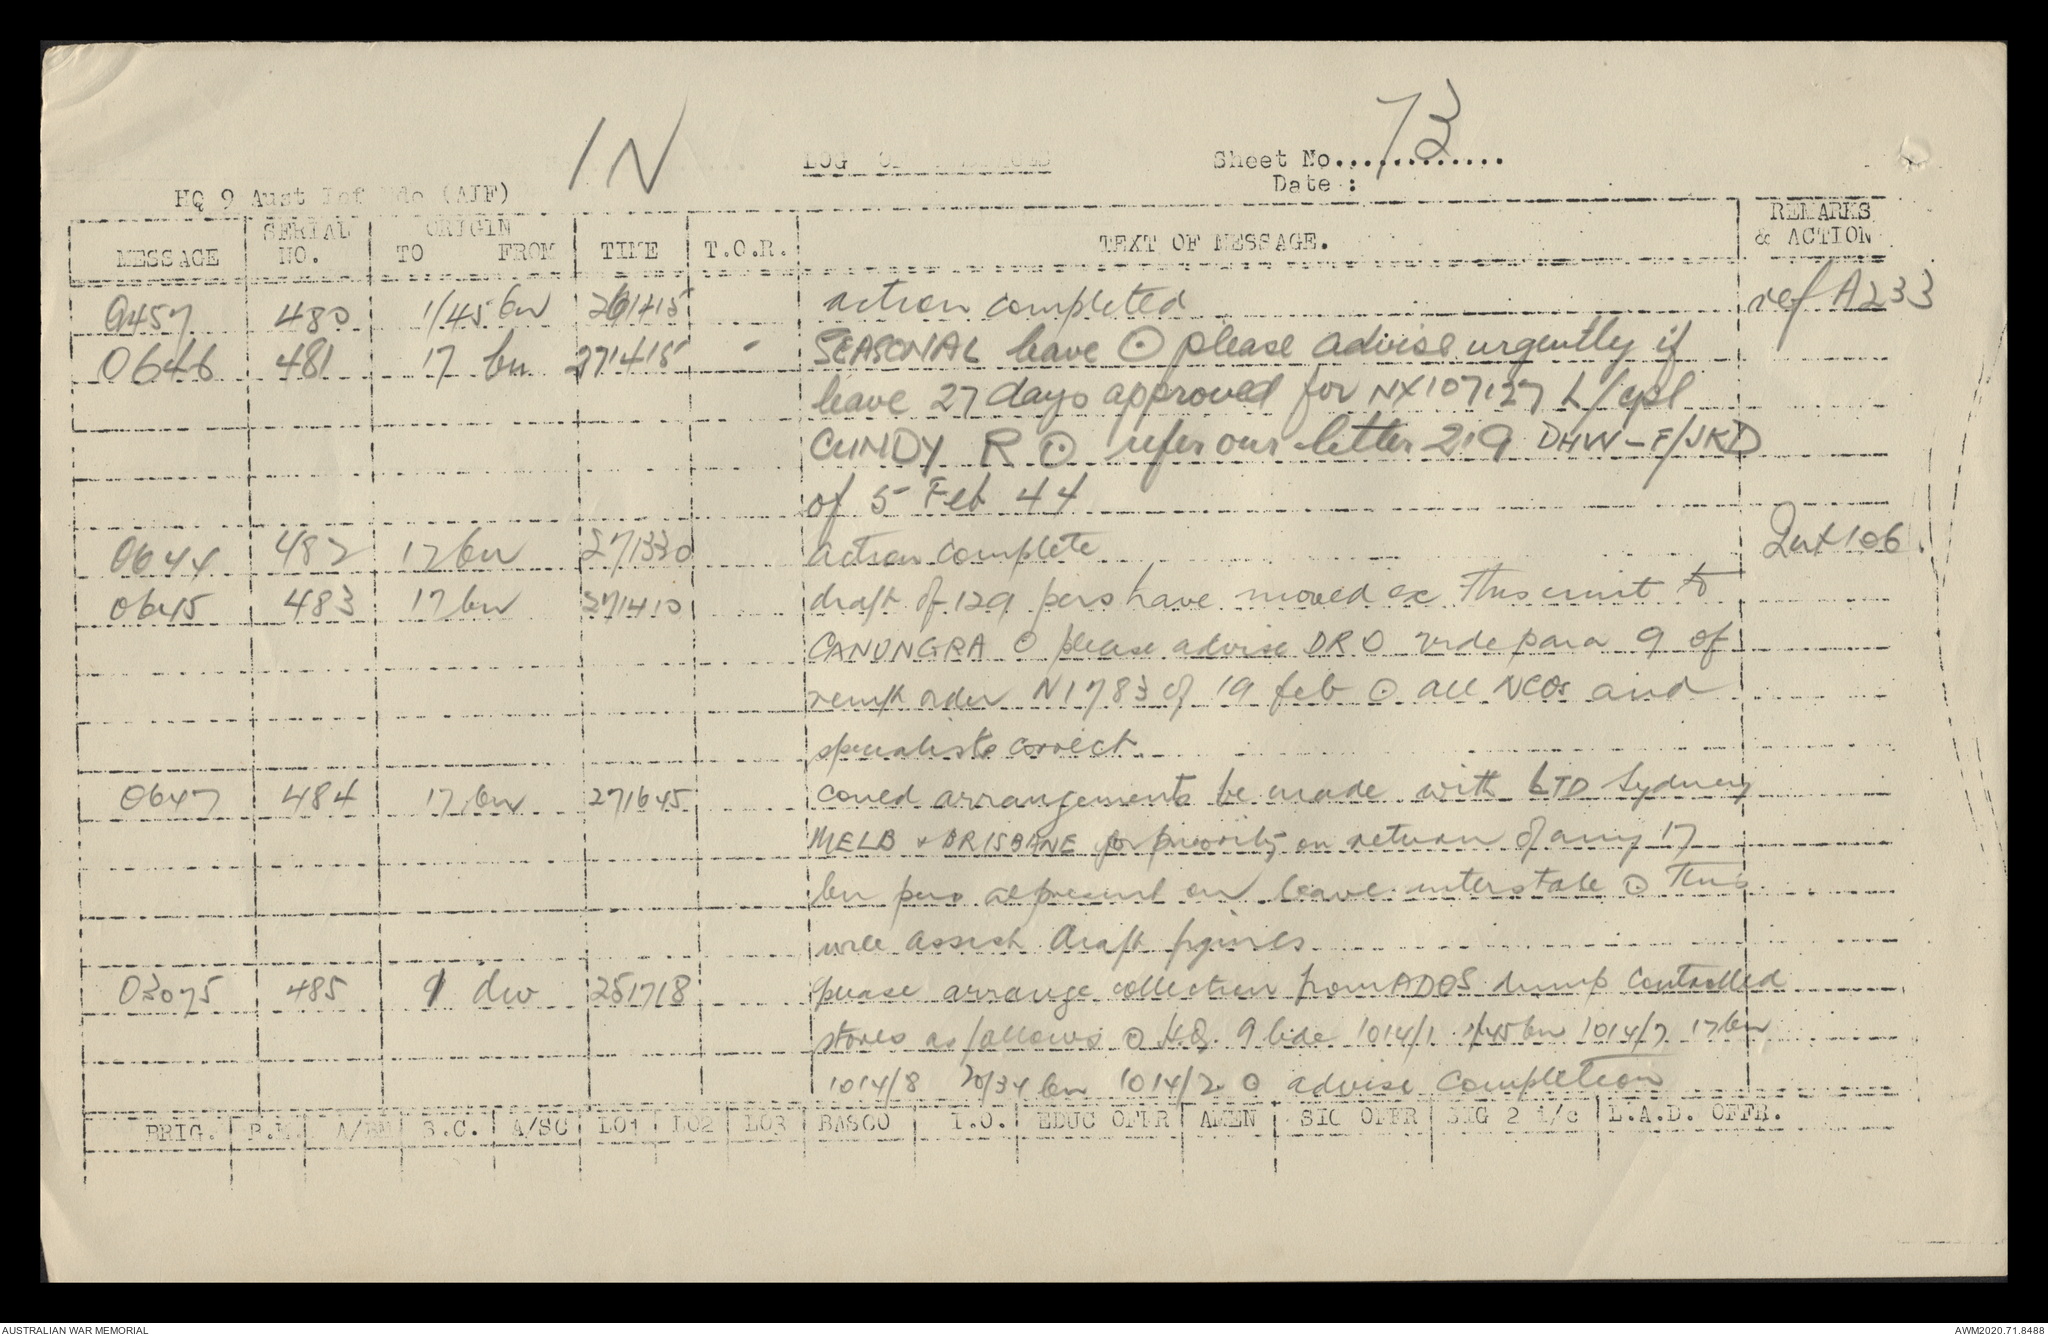 IN
LOG OF MESSAGES
Sheet No............. 73
Date :
HQ 9 Aust Inf Bde (AIF)
MESSAGE SERIAL NO. ORIGIN TO FROM TIME T.O.R. TEXT OF MESSAGE. REMARKS & ACTION
0457 480 1/45 bn 261415 action completed ref A233
0646 481 17 bn 271415 - SEASONAL leave ⊙ please advise urgently if
leave 27 days approved for NX107127 L/cpl
CUNDY R ⊙ refer our letter 219 DHW-F/JKD
of 5 Feb 44
0644 482 17 bn 271330 action complete 106.
0645 483 17 bn 271410 draft of 129 pers have moved ex this unit to
CANUNGRA ⊙ please advise DRO vide para 9 of
reinft order N1783 of 19 feb ⊙ all NCOs and
specialists correct
0647 484 17 bn 271645 could arrangements be made with LTD Sydney
MELB + BRISBANE for priority on return of any 17
bn pers at present on leave interstate ⊙ This
will assist draft figures
03075 485 9 div 251718 please arrange collection from ADOS dump controlled
stores as follows ⊙ H.Q. 9 bde 1014/1 1/45 bn 1014/7 17 bn
1014/8 20/34 bn 1014/2 ⊙ advise completion
BRIG. B.M. A/BM S.C. A/SC LO1 LO2 LO3 BASCO I.O. EDUC OFFR AMEN SIG OFFR SIG 2 i/c L.A.D. OFFR.
AUSTRALIAN WAR MEMORIAL
AWM2020.71.8488